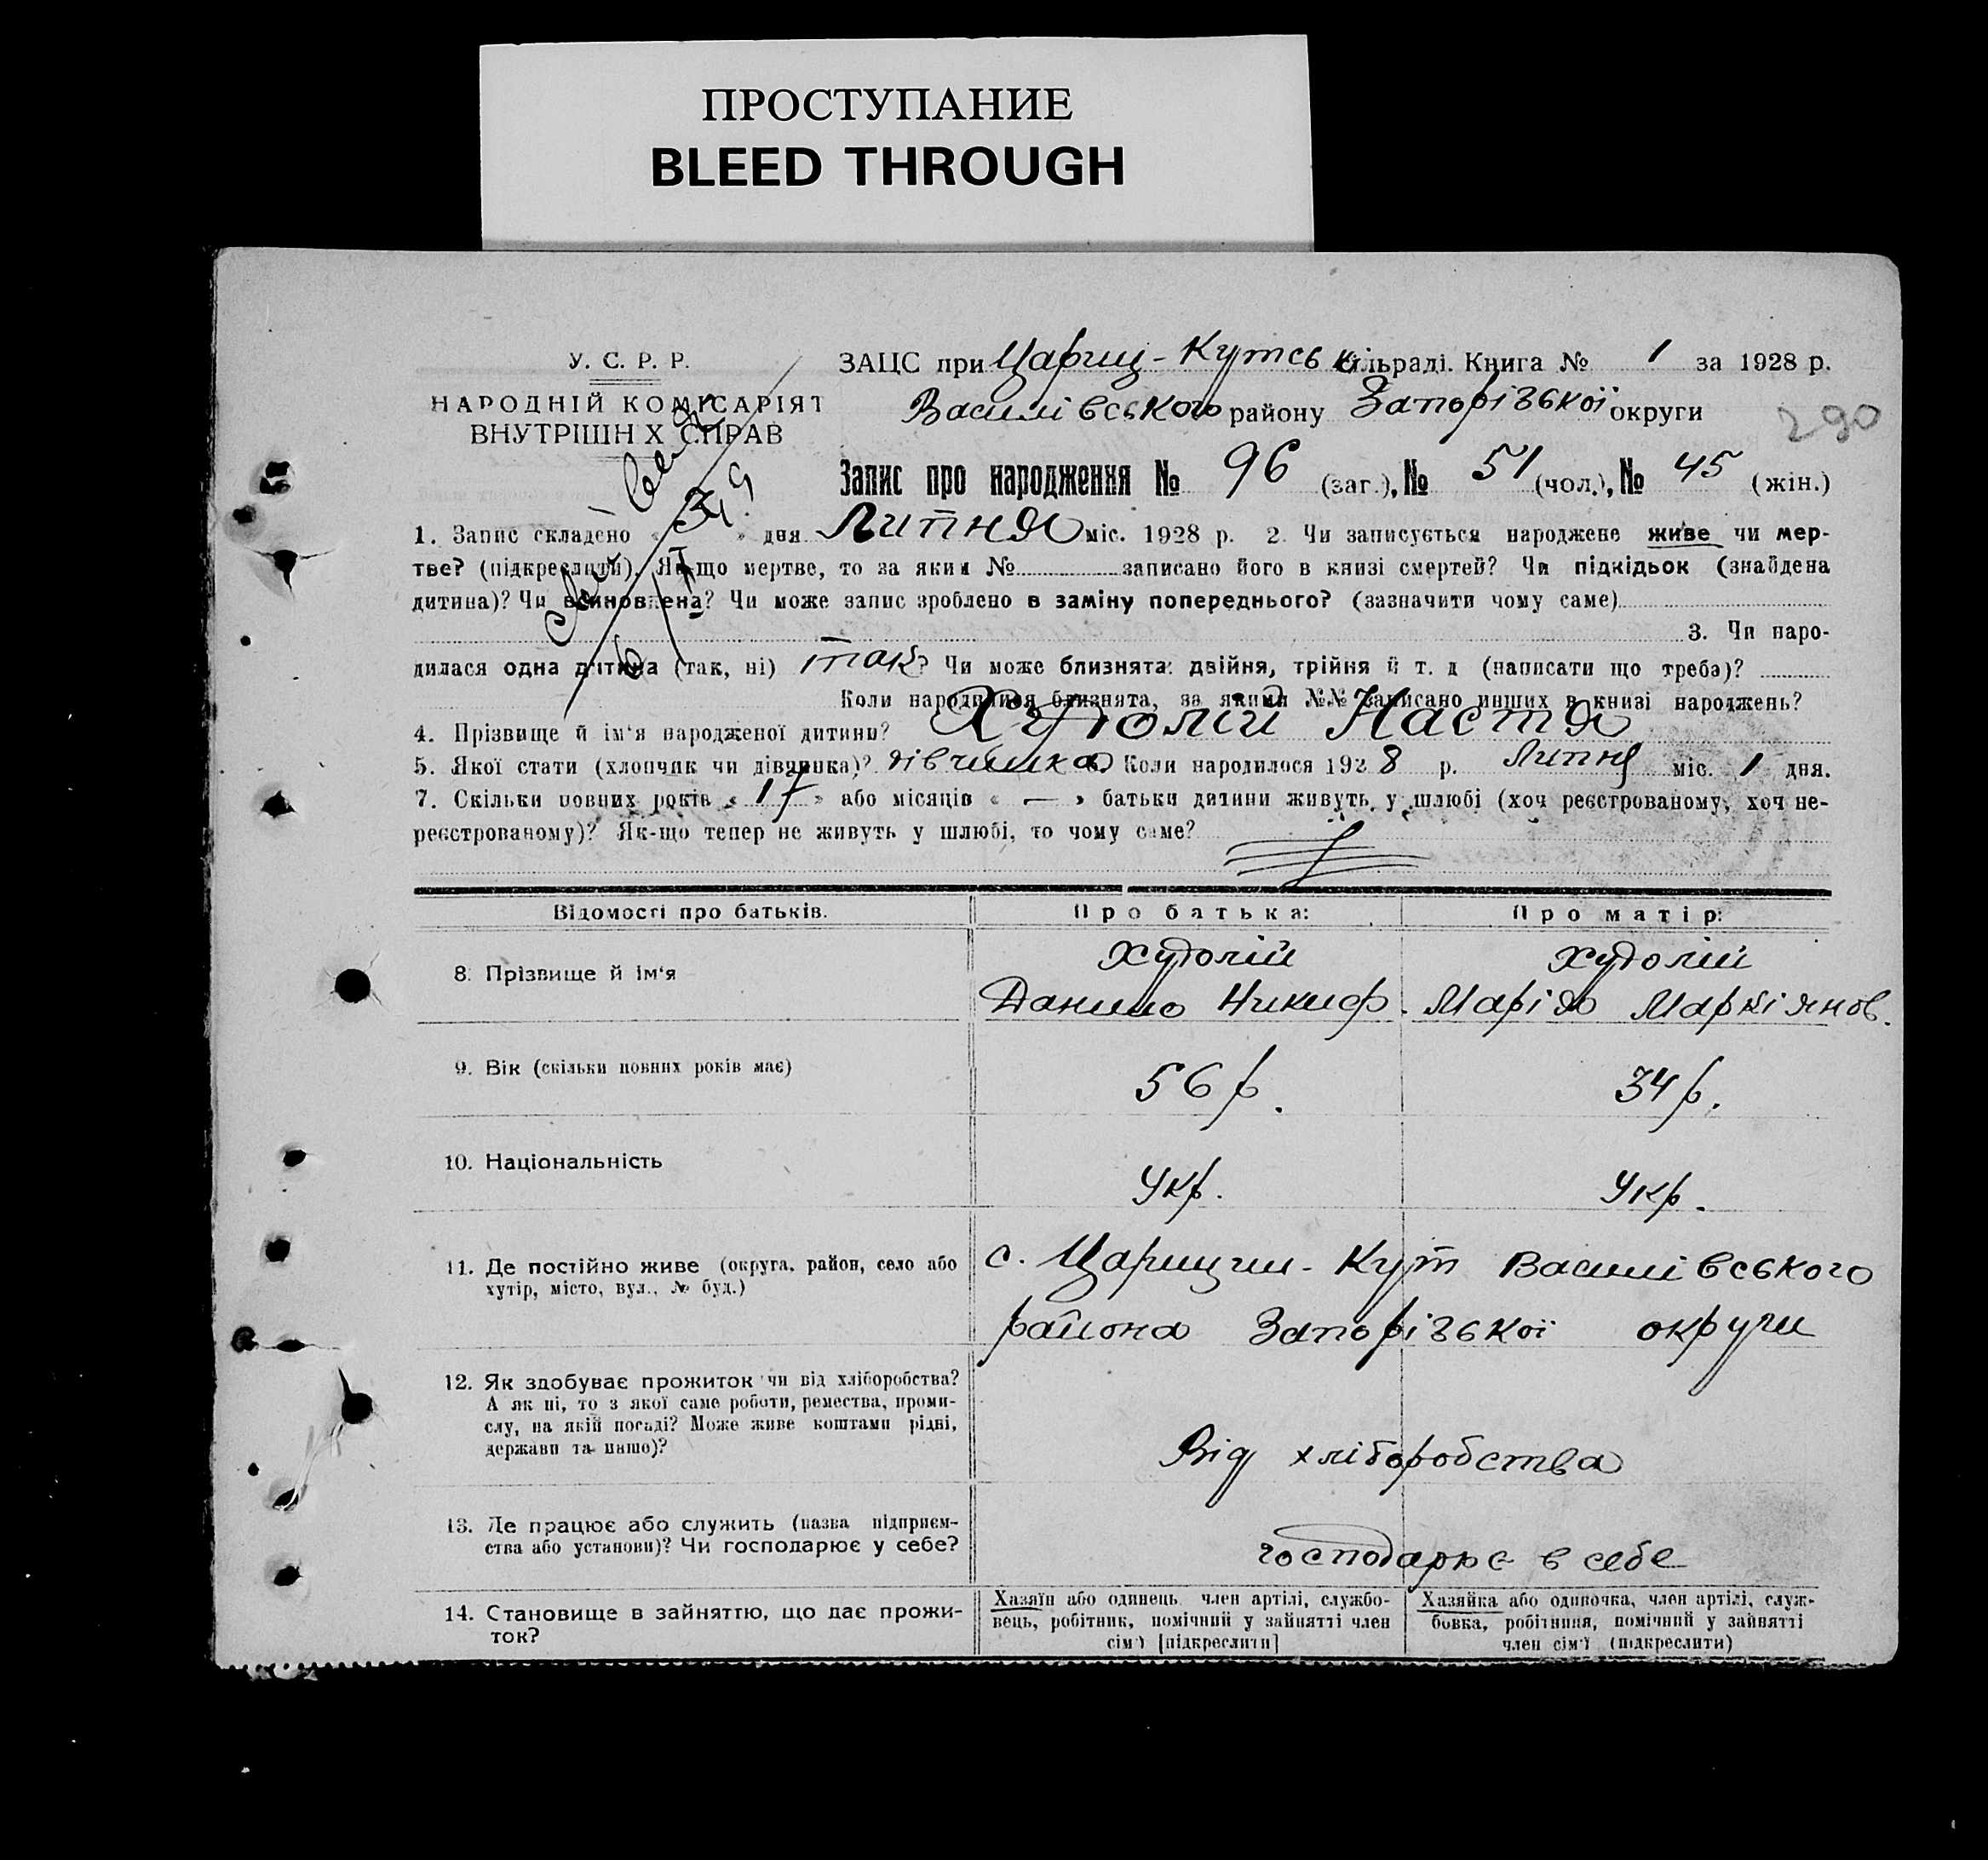 ПРОСТУПАНИЕ
BLEED THROUGH
У. С. Р. Р.
НАРОДНІЙ КОМІСАРІЯТ
ВНУТРІШН Х СПРАВ
ЗАЦС при Цариц-Кутськ сільраді. Книга № 1 за 1928 р.
Василівського району Запорізької округи
290
Запис про народження № 96 (заг.), № 51 (чол.), № 45 (жін.)
1. Запис складено « 3 » дня Липня міс. 1928 р. 2. Чи записується народжене живе чи мер-
тве? (підкреслити). Як-що мертве, то за яким № записано його в книзі смертей? Чи підкідьок (знайдена
дитина)? Чи всиновлена? Чи може запис зроблено в заміну попереднього? (зазначити чому саме)
3. Чи наро-
дилася одна дитина (так, ні) так? Чи може близнята: двійня, трійня й т. д (написати що треба)?
Коли народилися близнята, за якими №№ записано инших в книзі народжень?
4. Прізвище й ім'я народженої дитини? Худолій Настя
5. Якої стати (хлопчик чи дівчинка)? дівчинка 6. Коли народилося 1928 р. Липня міс. 1 дня.
7. Скільки повних років « 17 » або місяців « — » батьки дитини живуть у шлюбі (хоч реєстрованому, хоч не-
реєстрованому)? Як-що тепер не живуть у шлюбі, то чому саме?
Відомості про батьків. Про батька: Про матір:
8. Прізвище й ім'я Худолій Худолій
Данило Никиф. Марія Маркіянов.
9. Вік (скільки повних років має) 56 р. 34 р.
10. Національність Укр. Укр.
11. Де постійно живе (округа, район, село або
хутір, місто, вул., № буд.)
с. Царицин-Кут Василівського
района Запорізької округи
12. Як здобуває прожиток чи від хліборобства?
А як ні, то з якої саме роботи, ремества, проми-
слу, на якій посаді? Може живе коштами рідні,
держави та инше)?
Від хліборобства
13. Де працює або служить (назва підприєм-
ства або установи)? Чи господарює у себе?
господарює в себе
14. Становище в зайняттю, що дає прожи-
ток?
Хазяїн або одинець член артілі, службо-
вець, робітник, помічний у зайнятті член
сім'ї [підкреслити]
Хазяйка або одиночка, член артілі, служ-
бовка, робітниця, помічний у зайнятті
член сім'ї (підкреслити)